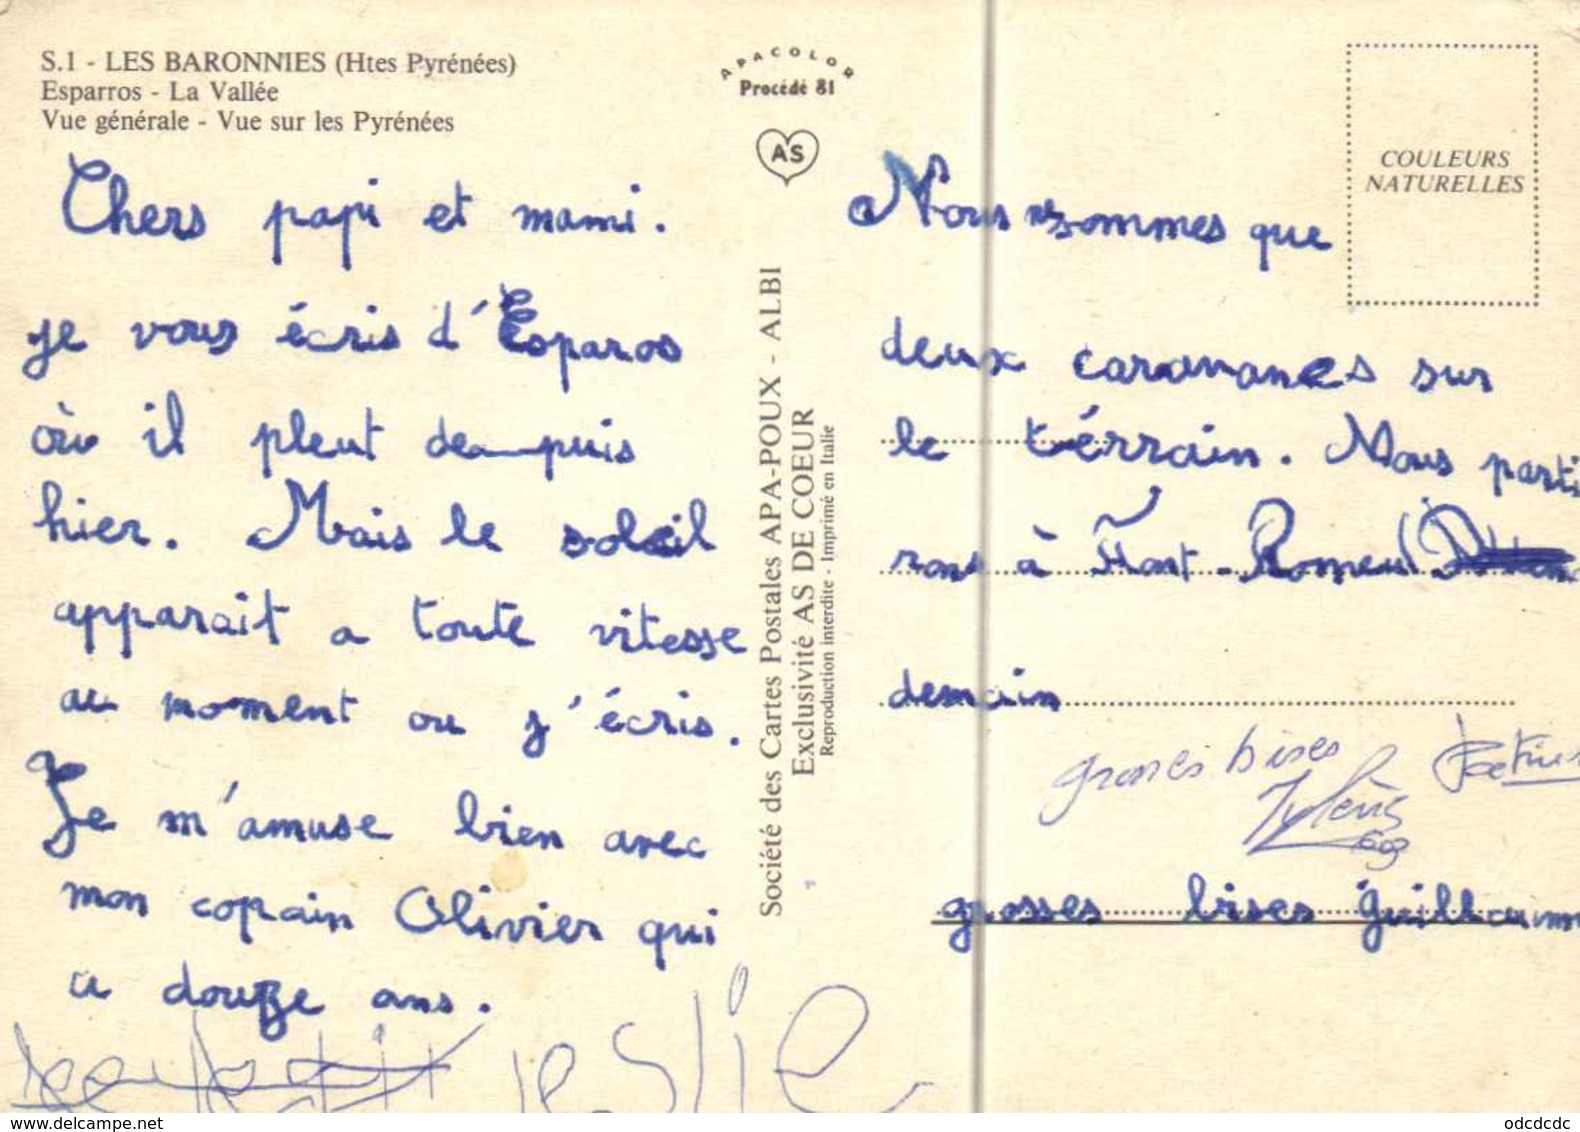 S.1 - LES BARONNIES (Htes Pyrénées)
Esparros - La Vallée
Vue générale - Vue sur les Pyrénées
APACOLOR
Procédé 81
AS
COULEURS
NATURELLES
Société des Cartes Postales APA-POUX - ALBI
Exclusivité AS DE COEUR
Reproduction interdite - Imprimé en Italie
Chers papi et mami.
je vous écris d'Esparos
où il pleut depuis
hier. Mais le soleil
apparait a toute vitesse
au moment ou j'écris.
Je m'amuse bien avec
mon copain Olivier qui
a douze ans.
leslie
Nous sommes que
deux caravanes sur
le térrain. Nous parti
rons à Font-Romeu
demain
grosses bises
grosses bises Guillaume
delcampe.net
odcdcdc